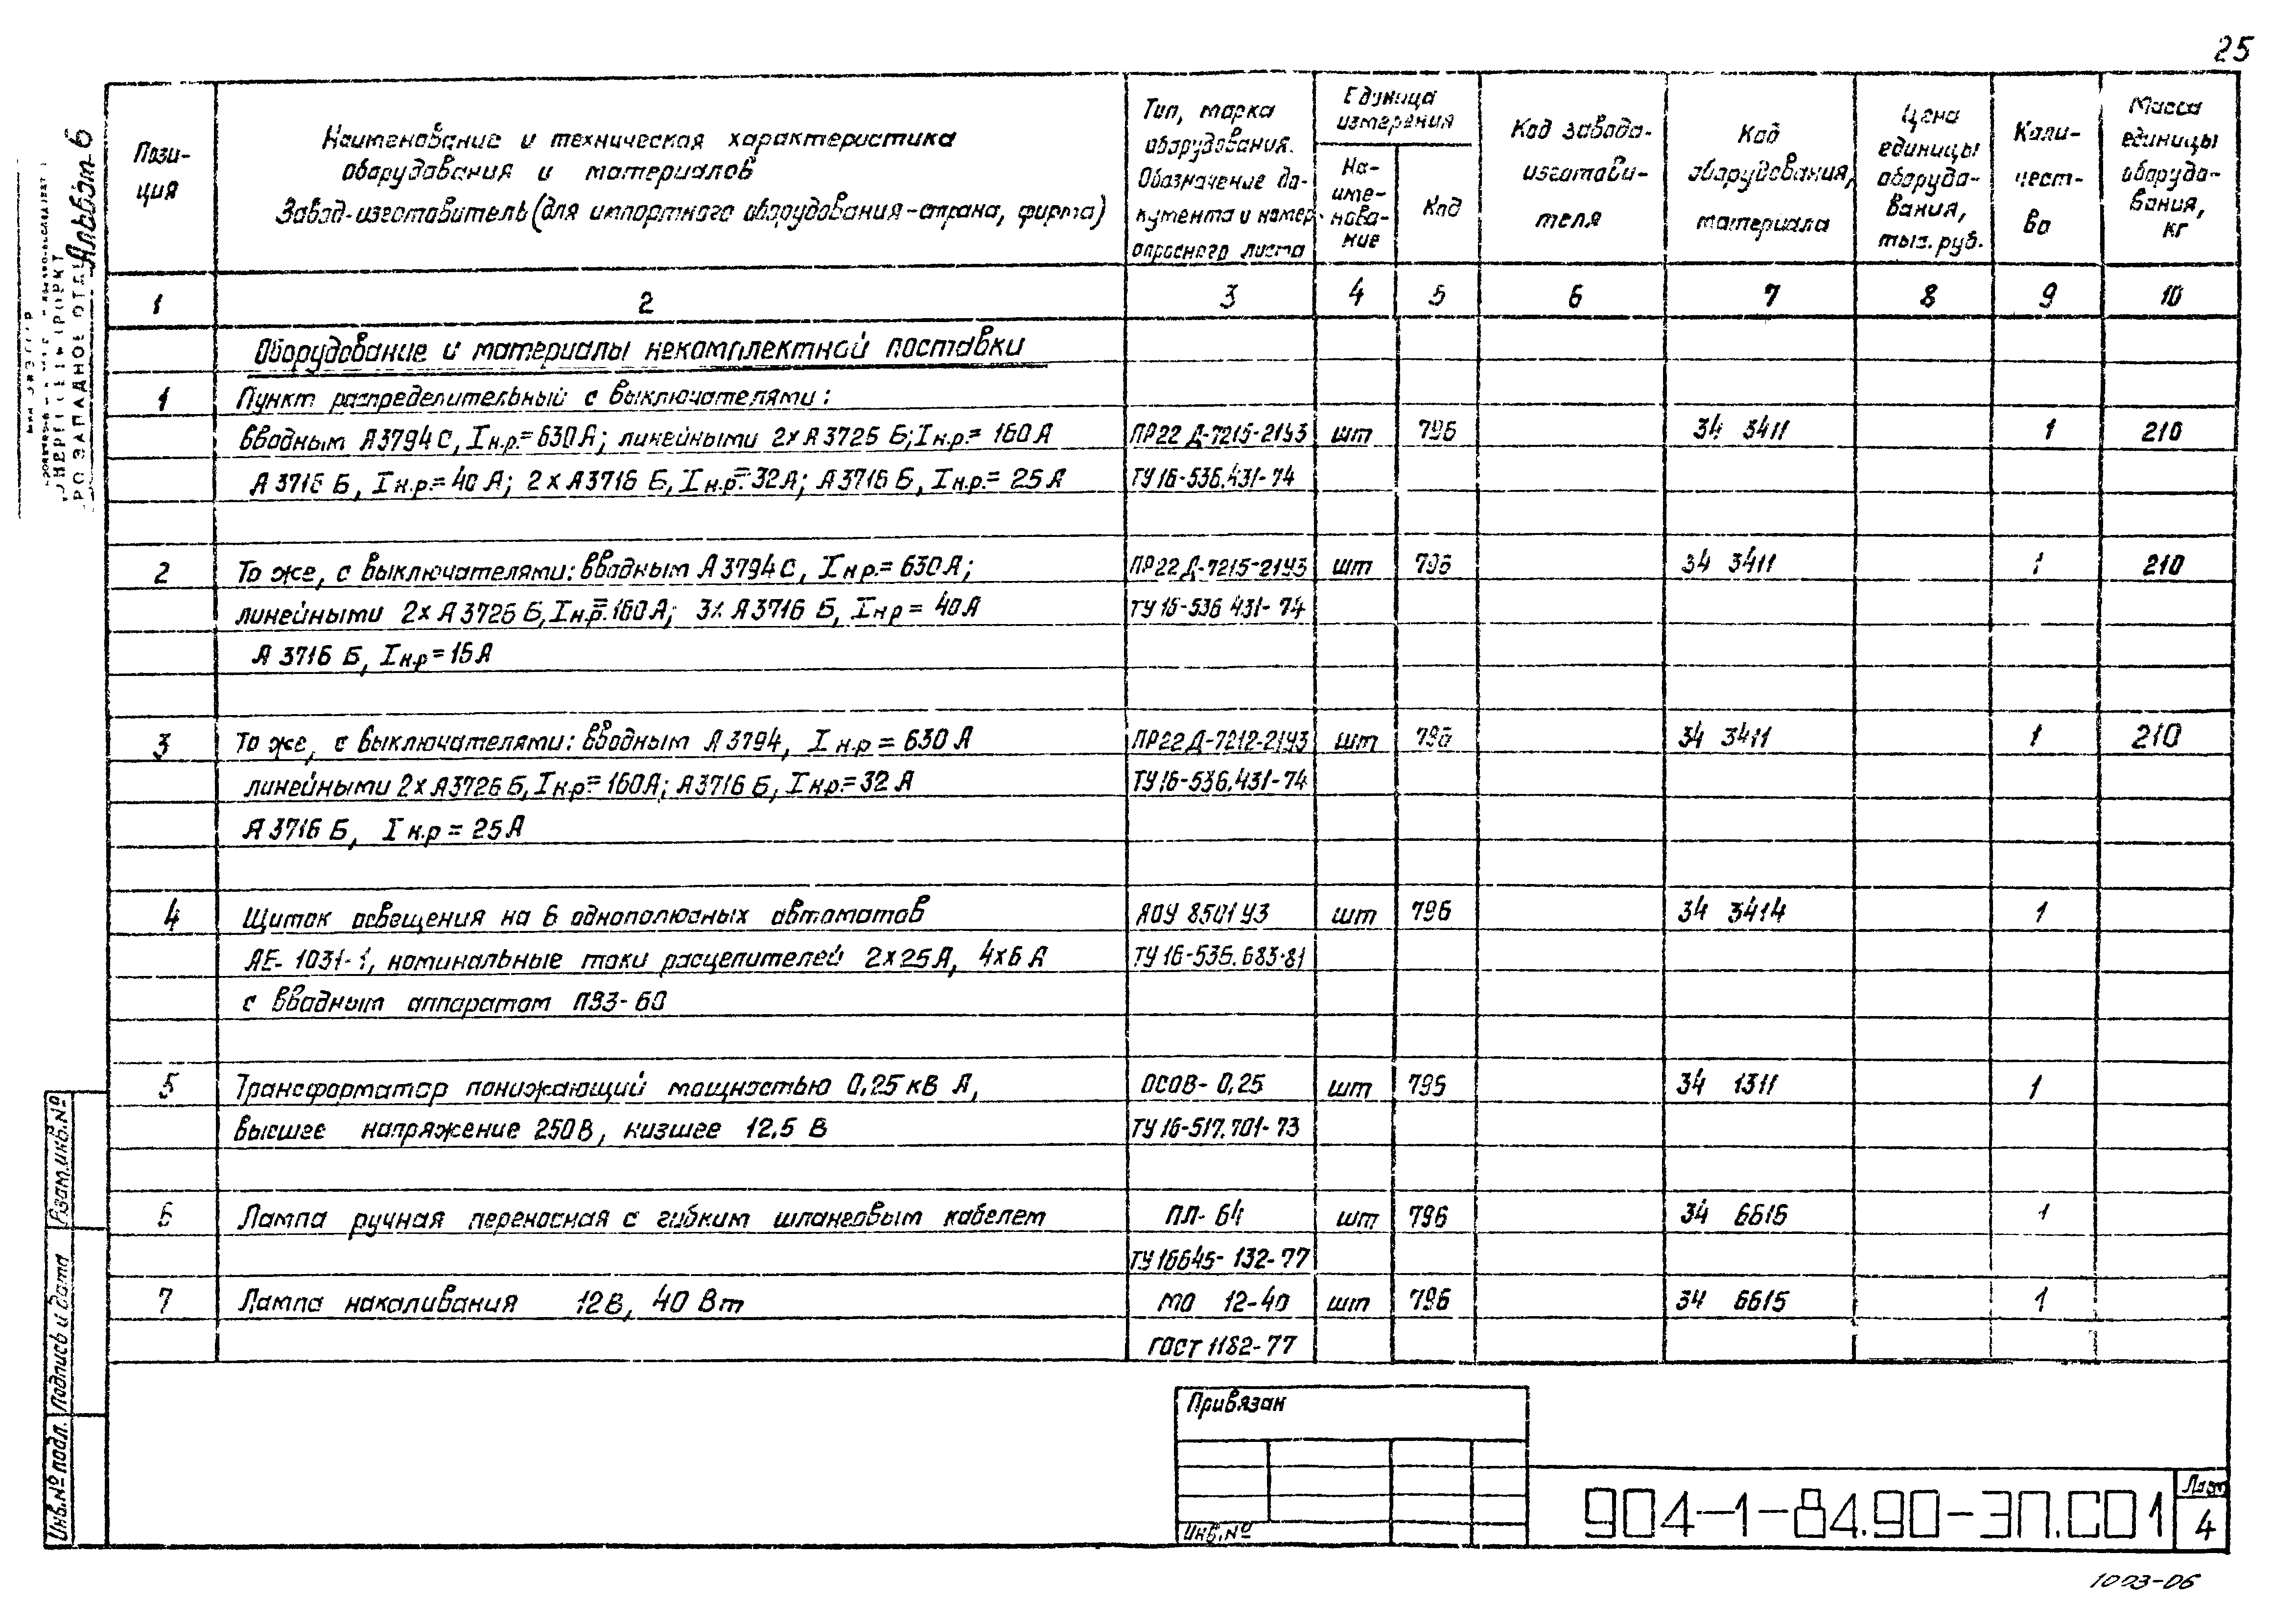 25
Альбом 6
Пози-
ция
Наименование и техническая характеристика
оборудования и материалов
Завод-изготовитель (для импортного оборудования-страна, фирма)
Тип, марка
оборудования.
Обозначение до-
кумента и номер
опросного листа
Единица
измерения
На-
име-
нова-
ние
Код
Код завода-
изготови-
теля
Код
оборудования,
материала
Цена
единицы
оборудо-
вания,
тыс. руб.
Коли-
чест-
во
Масса
единицы
оборудо-
вания,
кг
1 2 3 4 5 6 7 8 9 10
Оборудование и материалы некомплектной поставки
1 Пункт распределительный с выключателями:
вводным А3794С, Iн.р.=630А; линейными 2хА3726 Б; Iн.р.= 160А ПР22 Д-7215-21У3 шт 796 34 3411 1 210
А 3716 Б, Iн.р.= 40 А; 2 х А3716 Б, Iн.р.= 32А; А3716 Б, Iн.р.= 25А ТУ 16-536.431-74
2 То же, с выключателями: вводным А 3794С, Iн.р.= 630А; ПР22 Д-7215-21У3 шт 796 34 3411 1 210
линейными 2х А 3726 Б, Iн.р.=160А; 3х А3716 Б, Iн.р = 40А ТУ 16-536 431-74
А 3716 Б, Iн.р = 16А
3 То же, с выключателями: вводным А 3794, Iн.р = 630 А ПР22 Д-7212-21У3 шт 796 34 3411 1 210
линейными 2х А3726 Б, Iн.р = 160А; А3716 Б, Iн.р.= 32 А ТУ 16-536.431-74
А 3716 Б, Iн.р = 25А
4 Щиток освещения на 6 однополюсных автоматов ЯОУ 8501 У3 шт 796 34 3414 1
АЕ-1031-1, номинальные токи расцепителей 2х25А, 4х6А ТУ 16-536.683-81
с вводным аппаратом ПВ3-60
5 Трансформатор понижающий мощностью 0,25 кВ А, ОСОВ-0,25 шт 796 34 1311 1
высшее напряжение 250В, низшее 12.5 В ТУ 16-517.701-73
6 Лампа ручная переносная с гибким шланговым кабелем ПЛ-64 шт 796 34 6616 1
ТУ 16645-132-77
7 Лампа накаливания 12В, 40 Вт МО 12-40 шт 796 34 6615 1
ГОСТ 1182-77
Взам.инв.№
Подпись и дата
Инв.№ подл.
Привязан
Инв.№
904-1-84.90-ЭП.СО1
Лист
4
1003-06